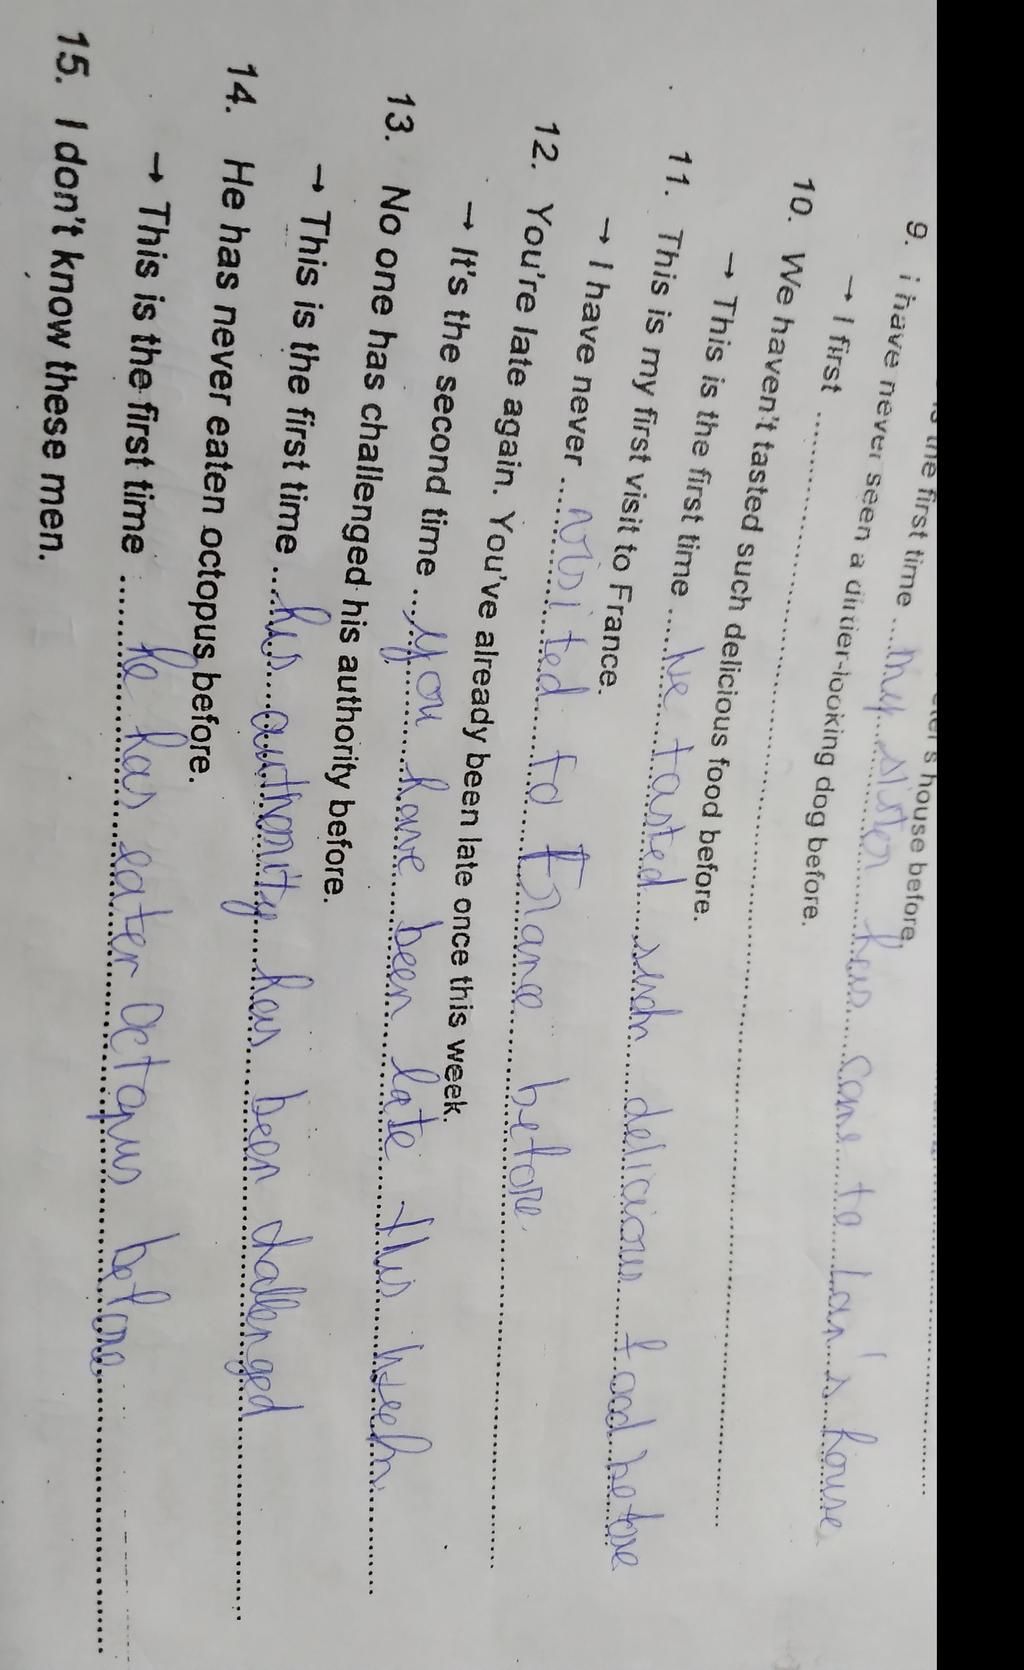 is the first time .... my sister has come to Lan's house
9. I have never seen a dirtier-looking dog before.
→ I first ....
10. We haven't tasted such delicious food before.
→ This is the first time .... we tasted such delicious food before
11. This is my first visit to France.
→ I have never .... visited to France before
12. You're late again. You've already been late once this week.
→ It's the second time .... you have been late this week
13. No one has challenged his authority before.
→ This is the first time .... his authority has been challenged
14. He has never eaten octopus before.
→ This is the first time .... he has eaten octopus before
15. I don't know these men.